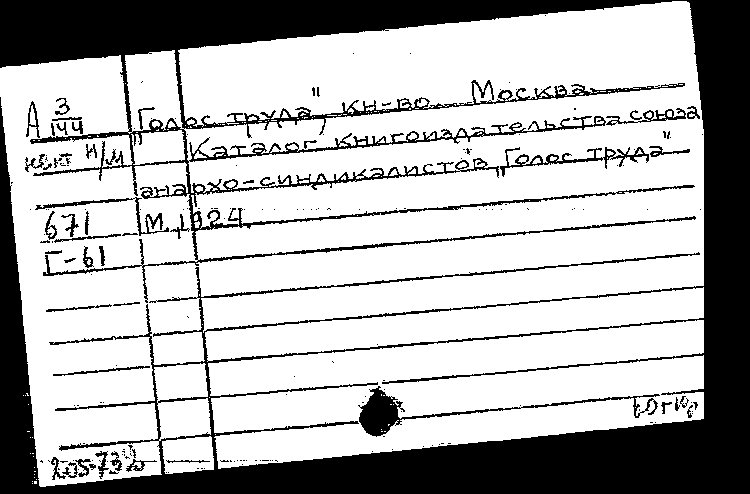 А 3/144 "Голос труда", кн-во. Москва.
н/м Каталог книгоиздательства союза
анархо-синдикалистов „Голос труда"
671 М., 1924.
Г-61
205-732